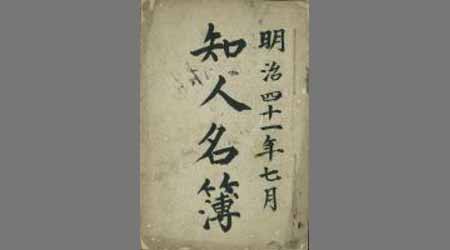 明治四十一年七月
知人名簿